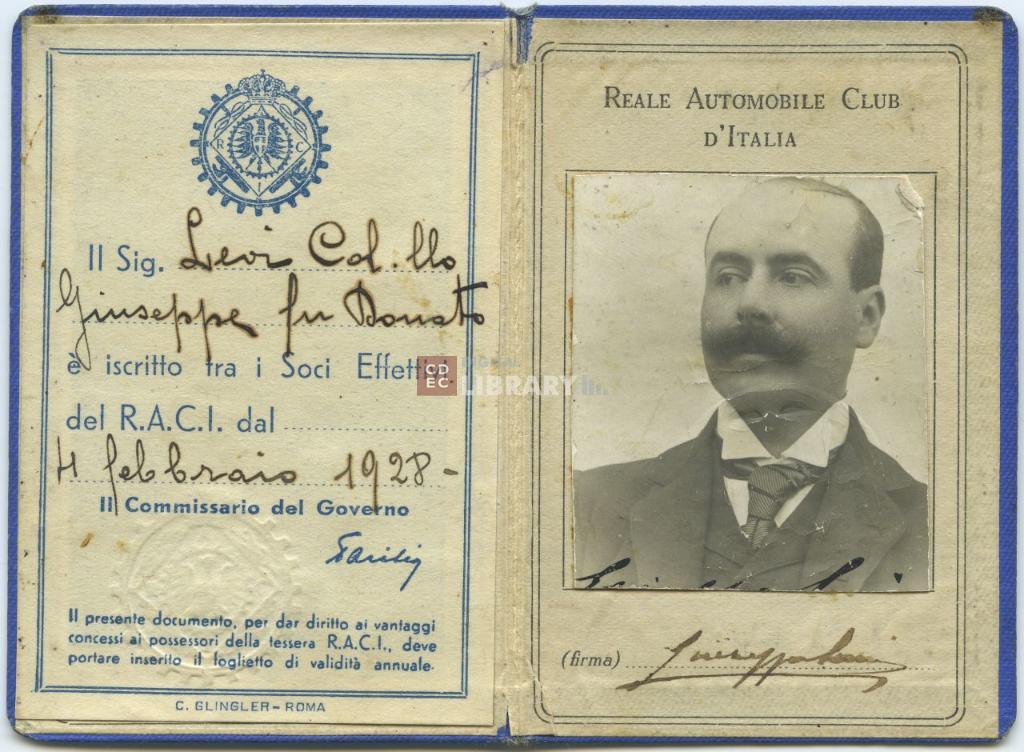 R
C
I
Il Sig. Levi Col.llo
Giuseppe fu Donato
è iscritto tra i Soci Effettivi
del R.A.C.I. dal
4 febbraio 1928-
Il Commissario del Governo
Il presente documento, per dar diritto ai vantaggi
concessi ai possessori della tessera R.A.C.I., deve
portare inserito il foglietto di validità annuale.
C. GLINGLER-ROMA
REALE AUTOMOBILE CLUB
D'ITALIA
(firma) Giuseppe Levi
CD
EC
DIGITAL
LIBRARY